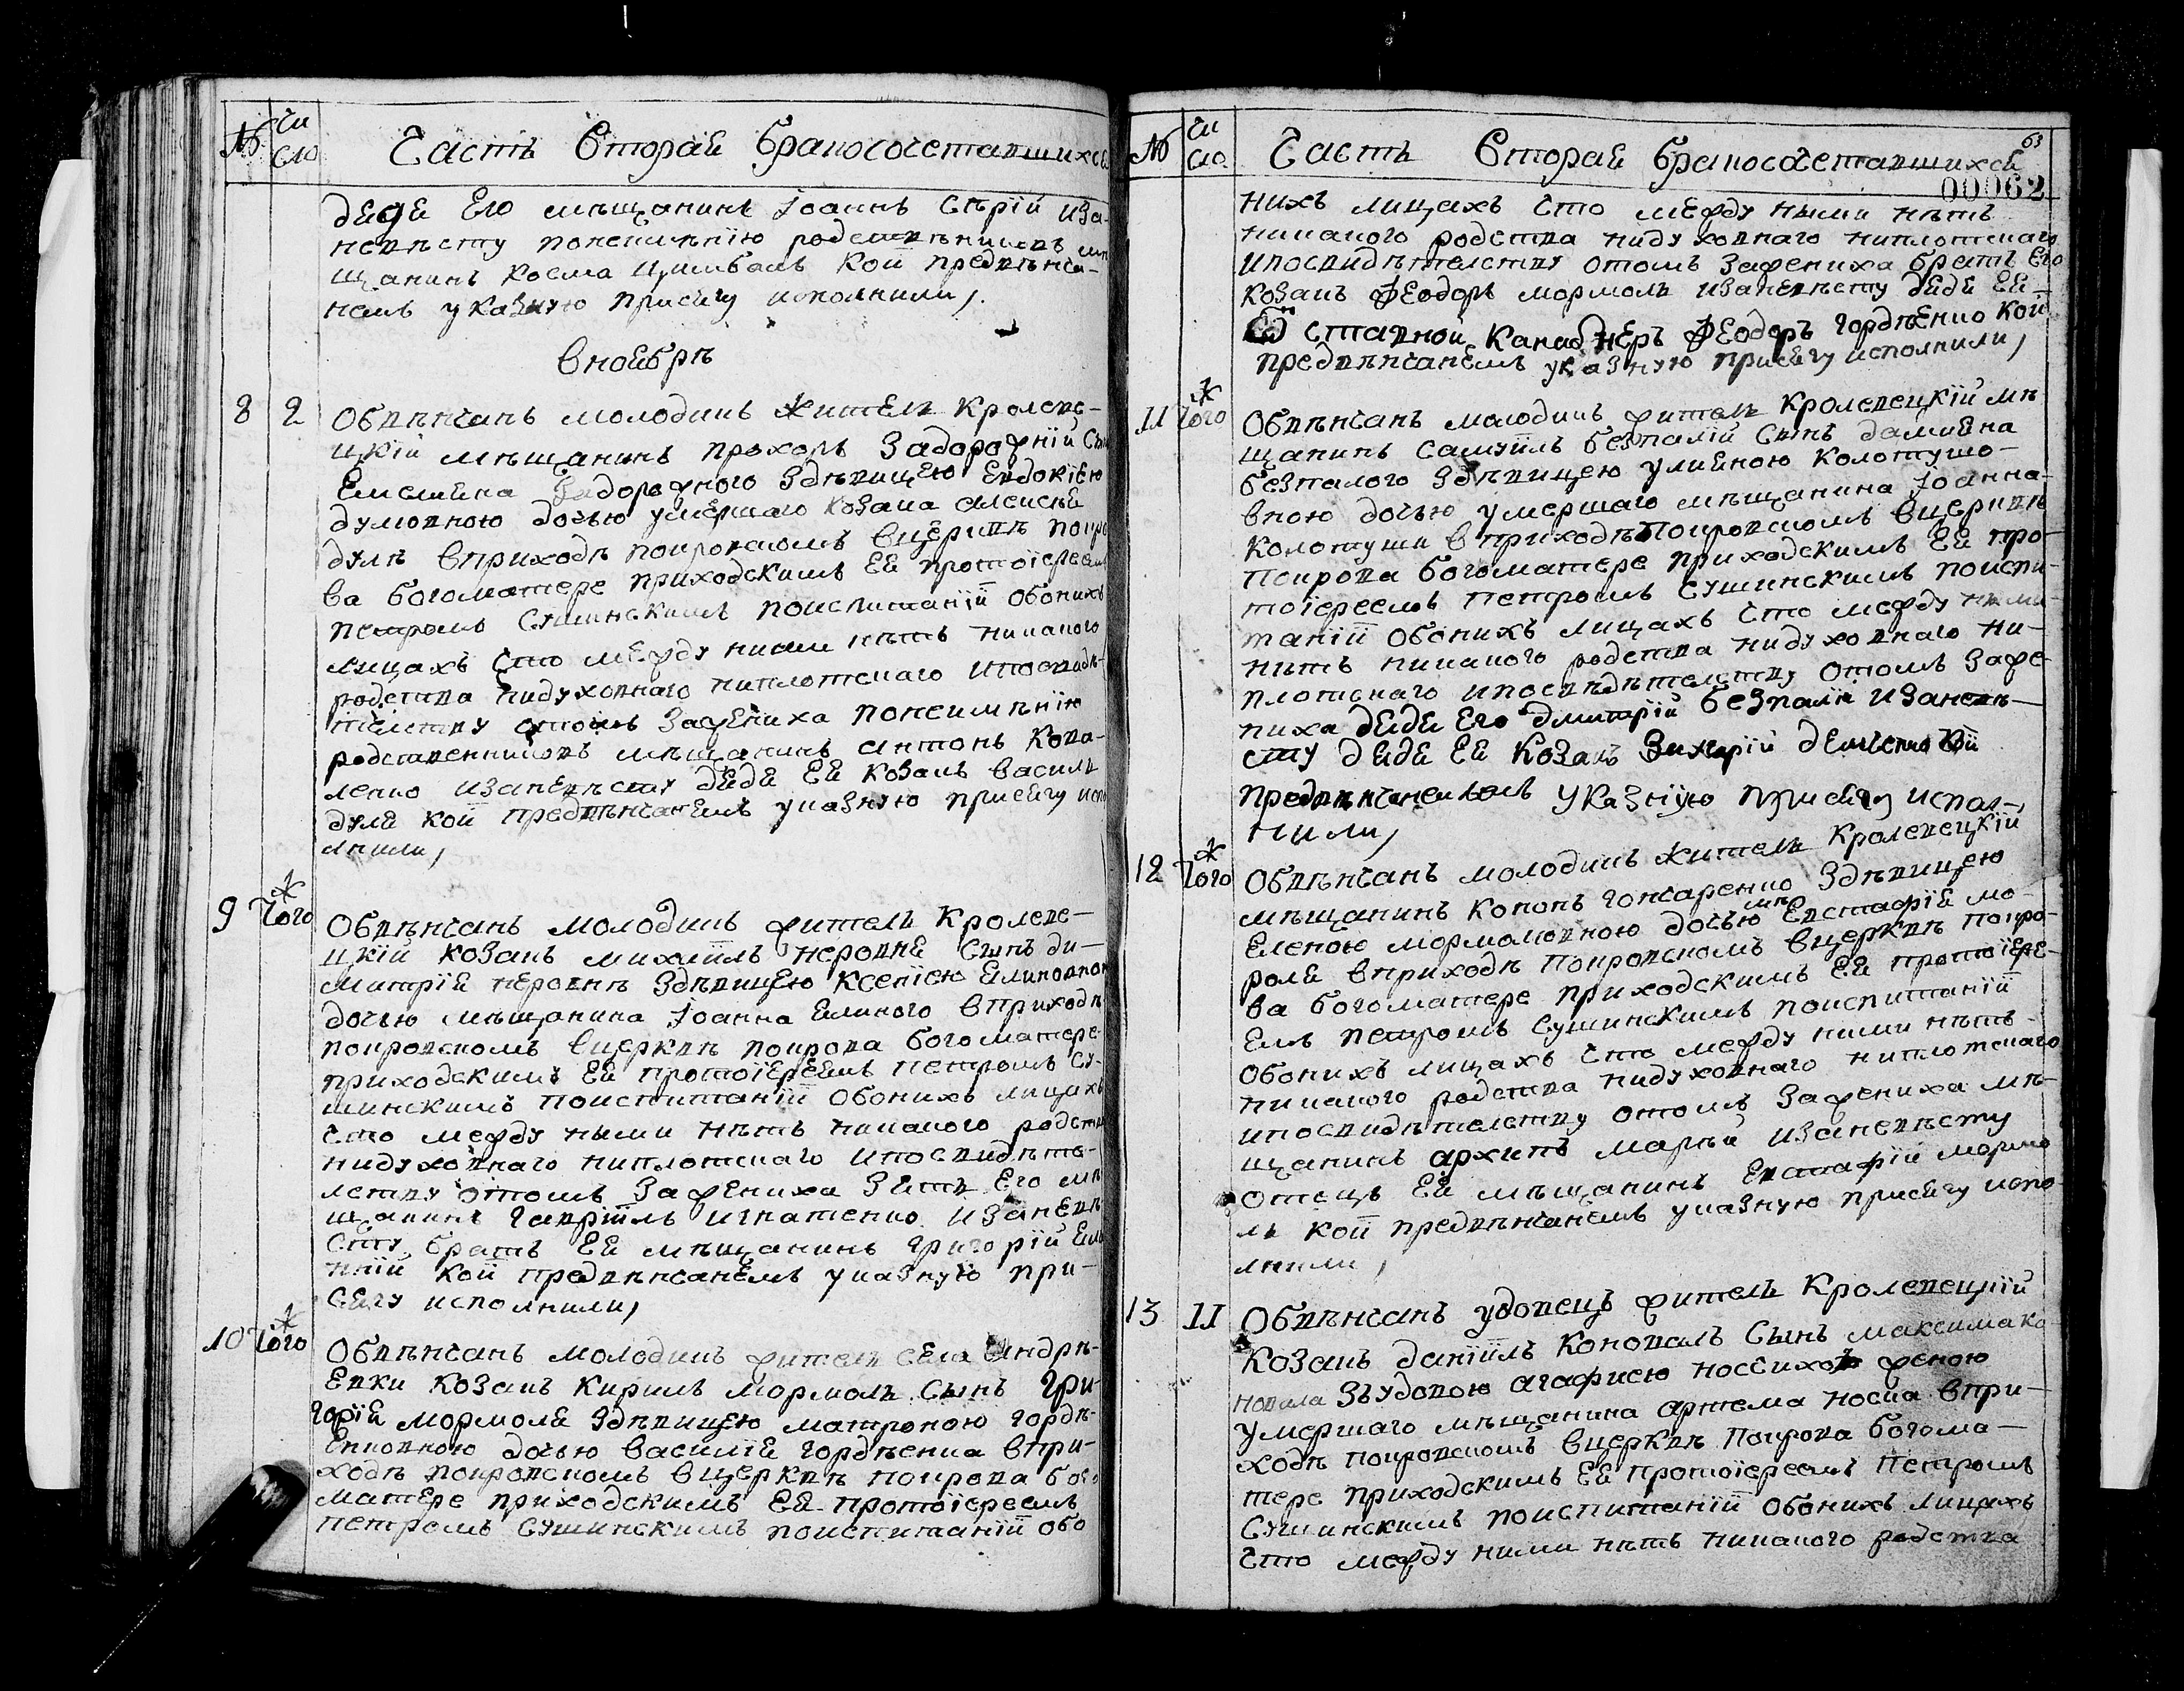 № Чи
сло
Часть Вторая бракосочетавшихся
дядя Его мѣщанинъ Іоаннъ Сѣрій иза-
невѣсту понеимѣнїю родственниковъ мѣ
щанинъ косма Цимбалъ Кои предвѣнча-
немъ указную присягу исполнили,
Вноябрѣ
8 2 Обвѣнчанъ молодикъ житель кролеве-
цкій мѣщанинъ прохоръ Задорожній Сынъ
Емеляна Задорожного Здѣвицею Евдокїею
думовною дочью умершаго козака алексѣя
думѣ вприходѣ покровскомъ вцерквѣ покро
ва богоматере приходскимъ Ея протоїереемъ
петромъ Сушинскимъ поиспитаніи обоихъ
лицахъ что между ними нѣтъ никакого
родства нидуховнаго ниплотскаго ипосвидѣ-
телству отомъ Зажениха понеимѣнію
родственниковъ мѣщанинъ антонъ Кова-
ленко изаневѣсту дядя Ея козакъ василь
дума кои предвѣнчанемъ указную присягу испо
лнили,
9 Того ж Обвѣнчанъ молодикъ житель кролеве-
цкій козакъ михаилъ неровня Сынъ ди-
митрія неровнѣ Здѣвицею Ксенїею Еликовною
дочью мѣщанина Іоанна Еликого вприходѣ
покровскомъ вцерквѣ покрова богоматере
приходскимъ Ея протоїереемъ петромъ Су-
шинскимъ поиспитаніи обоихъ лицахъ
что между ными нѣтъ никакого родства
нидуховнаго ниплотскаго ипосвидѣте-
лству отомъ Зажениха Зять Его мѣ
щанинъ гавріилъ игнатенко изаневѣ
сту братъ Ея мѣщанинъ григорій Ели
кній кои предвѣнчанемъ указную при-
сягу исполнили,
10 Того ж Обвѣнчанъ молодикъ житель села Андрѣ-
Евки козакъ Кирилъ мормоль Сынъ гри-
горія мормоля Здѣвицею матроною гордѣ-
Енковною дочью василія гордѣенка впри-
ходѣ покровскомъ вцерквѣ покрова бого
матере приходскимъ Ея протоїереемъ
петромъ Сушинскимъ поиспитаніи обо
№ Чи
сло
Часть Вторая бракосочетавшихся
63
00062
нихъ лицахъ что между ными нѣтъ
никакого родства нидуховнаго ниплотскаго
ипосвидѣтелству отомъ Зажениха братъ Его
козакъ Феодоръ мормоль изаневѣсту дядя Ея
Ѿставной Канонѣръ Феодоръ гордѣенко кои
предвѣнчанемъ указную присягу исполнили,
11 Того ж Обвѣнчанъ молодикъ житель кролевецкій мѣ
щанинъ Самуилъ безпалій Сынъ дамияна
безпалого Здѣвицею улияною Колотушо-
вною дочью умершаго мѣщанина Іоанна
Колотуши вприходѣ Покровскомъ вцерквѣ
Покрова богоматере приходскимъ Ея про-
тоїереемъ петромъ Сушинскимъ поиспи-
таніи обоихъ лицахъ что между ними
нѣтъ никакого родства нидуховнаго ни-
плотскаго ипосвидѣтелству отомъ Заже-
ниха дядя Его дмитрій безпалій изаневѣ-
сту дядя Ея козакъ Захарій демченко кои
предвѣнчанемъ указную присягу испол-
нили,
12 Того ж Обвѣнчанъ молодикъ житель кролевецкій
мѣщанинъ Кононъ гончаренко Здѣвицею
Еленою мормолювною дочью мѣ Евстафій мо-
роля вприходѣ покровскомъ вцерквѣ покро-
ва богоматере приходскимъ Ея протоїере-
емъ петромъ Сушинскимъ поиспитаніи
обоихъ лицахъ что между ними нѣтъ
никакого родства нидуховнаго ниплотскаго
ипосвидѣтелству отомъ Зажениха мѣ-
щанинъ архипъ малѣй изаневѣсту
отецъ Ея мѣщанинъ Евстафій мормо
ль кои предвѣнчанемъ указную присягу испо-
лнили,
13 11 Обвѣнчанъ удовецъ житель Кролевецкій
козакъ даніилъ Коновалъ Сынъ максима ко
новала Зъудовою агафиею носчихою женою
умершаго мѣщанина артема носка впри-
ходѣ покровскомъ вцерквѣ Покрова богома-
тере приходскимъ Ея протоїереемъ петромъ
Сушинскимъ поиспитаніи обоихъ лицахъ
что между ними нѣтъ никакого родства